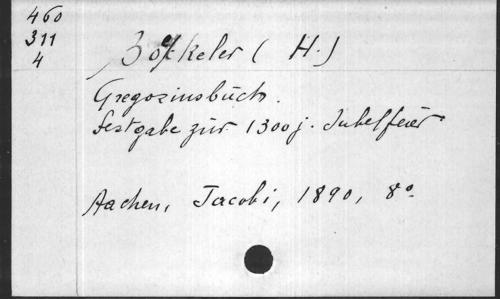 460
311
4
Böckeler (H.)
Gregoriusbuch.
Festgabe zur 1300j. Jubelfeier
Aachen, Jacobi, 1890, 8º.